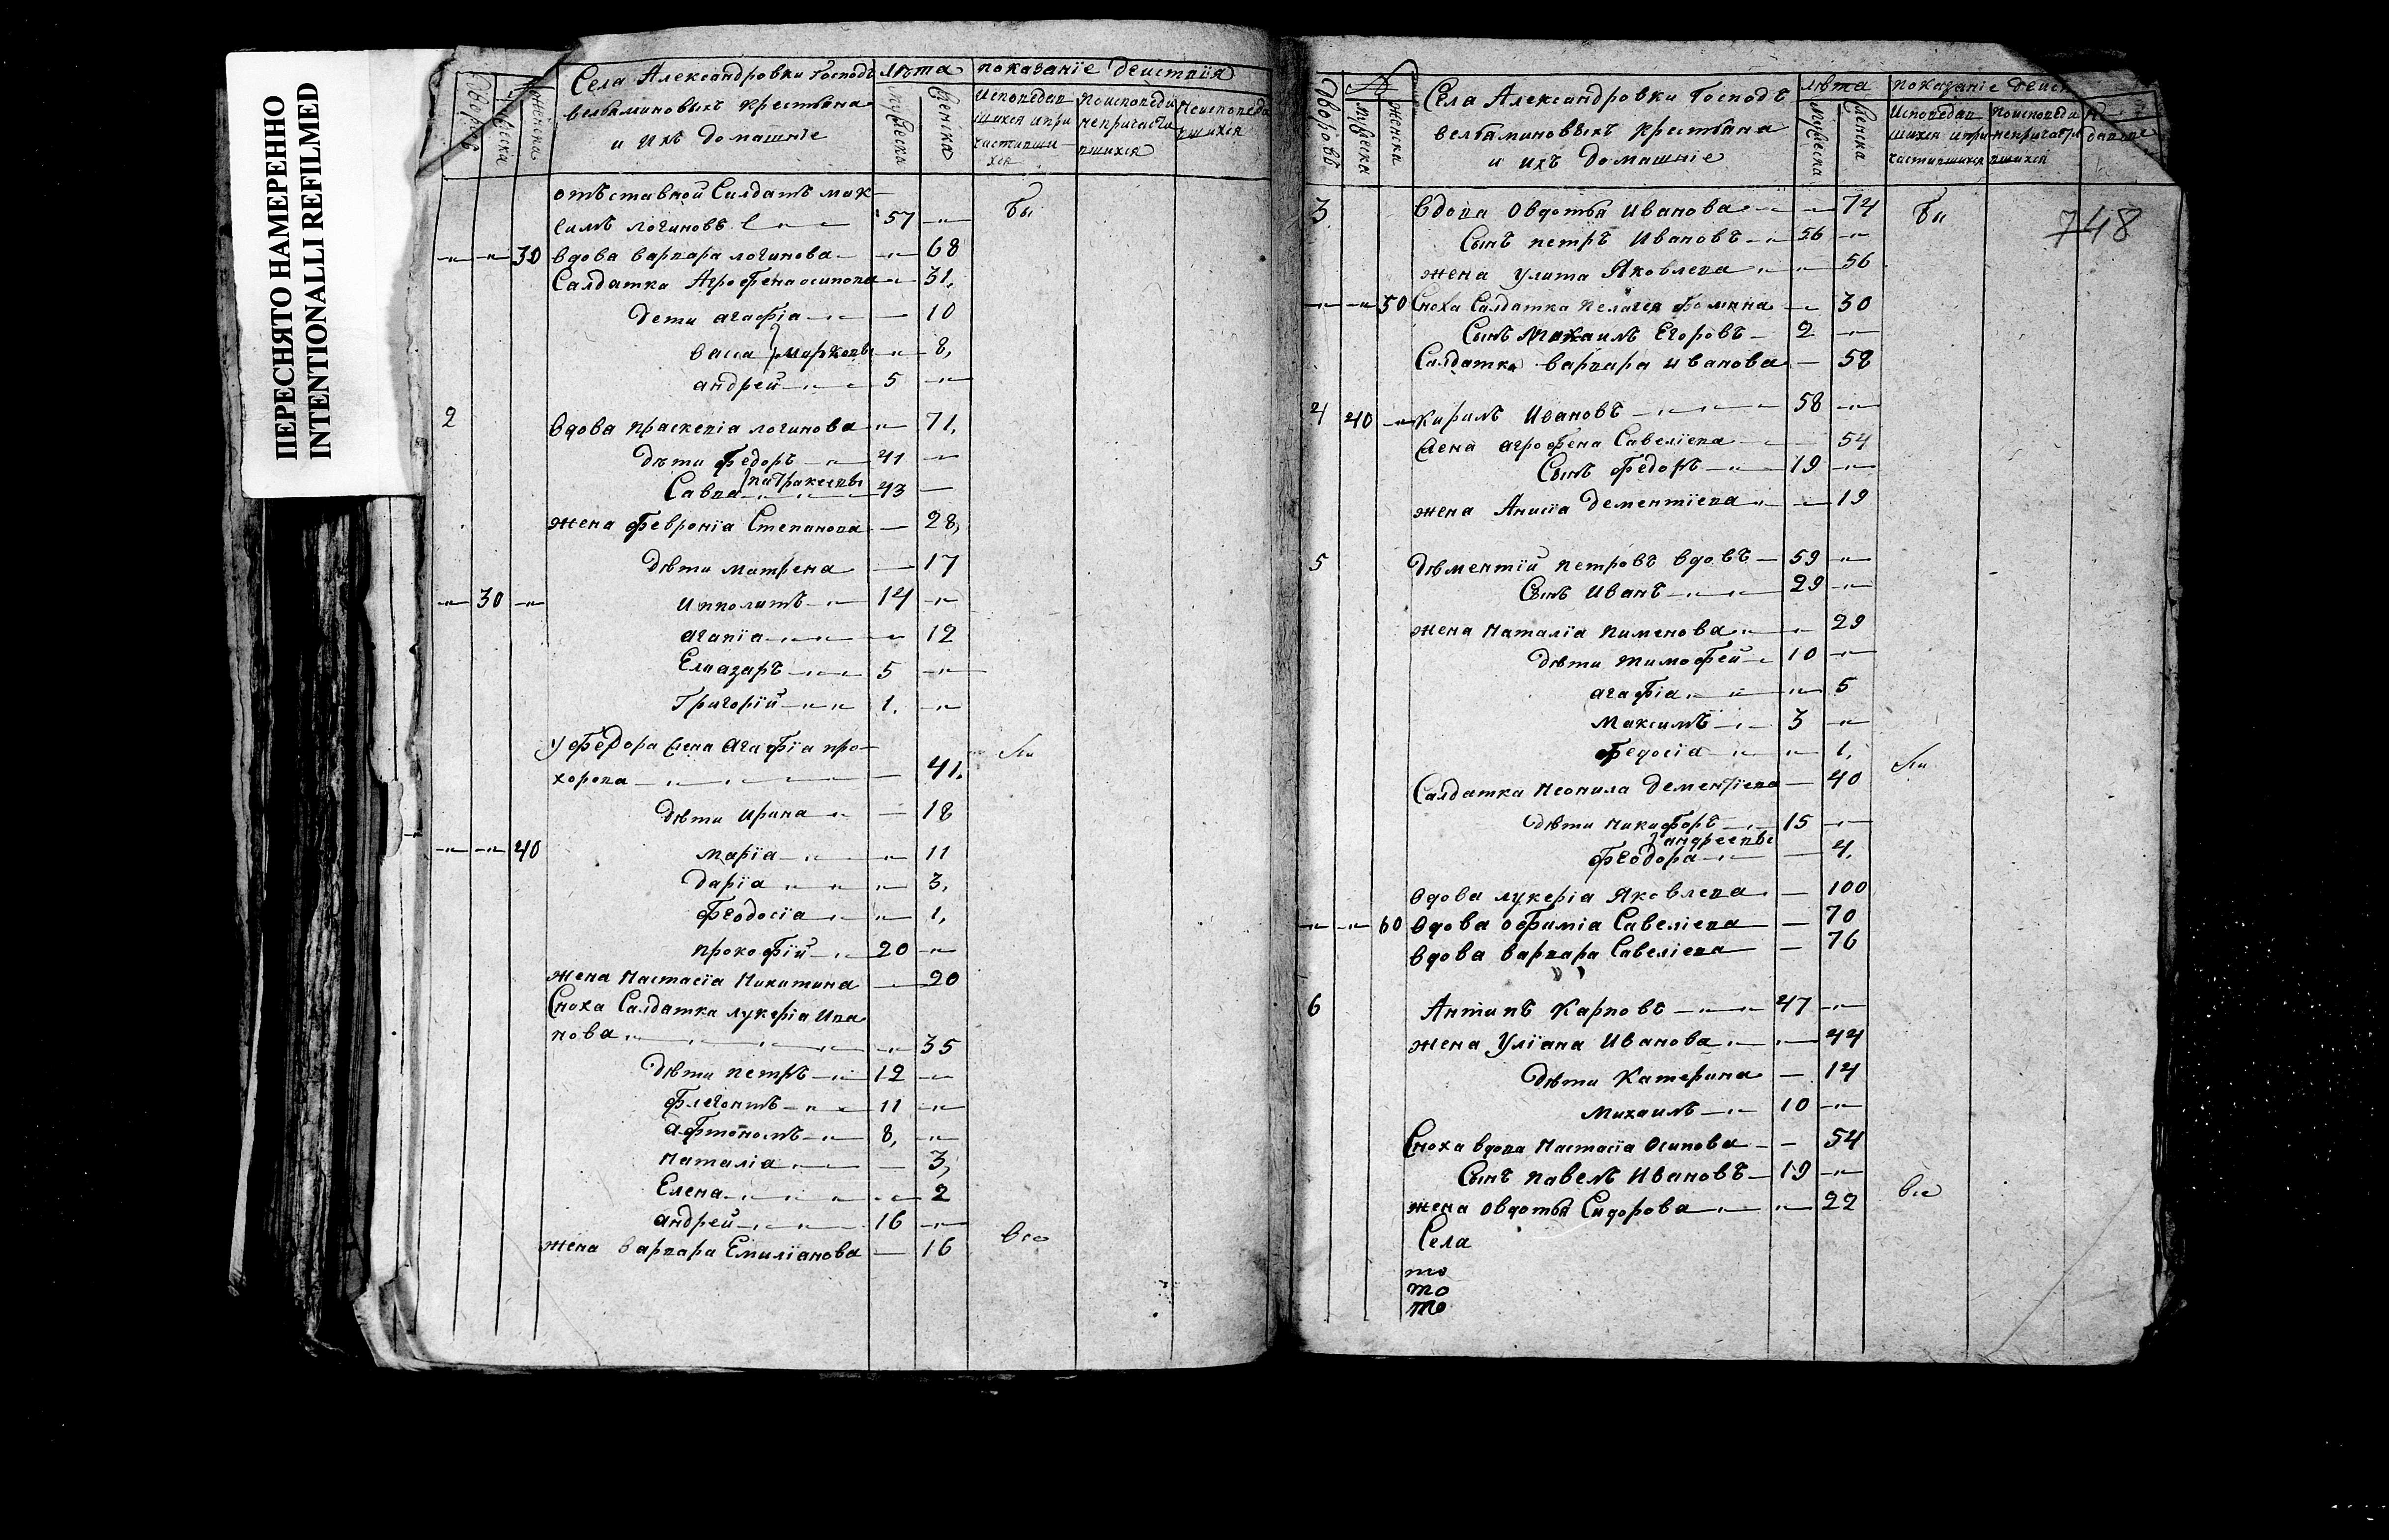 ПЕРЕСНЯТО НАМЕРЕННО
INTENTIONALLI REFILMED
Села Александровки Господъ
вельяминовыхъ крестьяна
и ихъ домашніе
лѣта
показаніе деиствия
дворовъ
мужеска
женска
мужеска
женска
Исповедав
шихся и при
частивши
хся
поисповеди
непричасти
вшихся
неисповеда
вшихся
отъставной Салдатъ мак
симъ логиновъ 57
бы
30 вдова варвара логинова 68
Салдатка Агрофена осипова 31,
дети агафіа 10
васса марковы 8,
андрей 5
2 вдова праскевіа логинова 71,
дѣти федоръ 41
патракеевы
Савва 43
жена февроніа Степанова 28,
дѣти матрена 17
30 ипполитъ 14
агапіа 12
Елиазаръ 5
Григорій 1.
у федора жена агафіа про
хорова 41.
ли
дѣти ирина 18
40 маріа 11
даріа 3,
феодосіа 1,
прокофій 20
жена настасіа никитина 20
Сноха Салдатка лукеріа ива
нова 35
дѣти петръ 12
флегонтъ 11
афтономъ 8,
наталіа 3,
Елена 2
андрей 16
жена варвара Емиліанова 16
все
дворовъ
мужеска
женска
Села Александровки Господъ
вельяминовыхъ крестьяна
и ихъ домашніе
лѣта
показаніе деис
мужеска
женска
Исповедав
шихся и при
частившихся
поисповеди
непричасти
вшихся
748
3 вдова овдотья иванова 74
бы
Сынъ петръ ивановъ 56
жена улита Яковлева 56
50 Сноха Салдатка пелагея фомина 30
Сынъ михаилъ Егоровъ 2
Салдатка варвара иванова 58
4 40 кирилъ ивановъ 58
жена агрофена Савеліева 54
Сынъ федоръ 19
жена Анисіа дементіева 19
5 дѣментій петровъ вдовъ 59
Сынъ иванъ 29
жена наталіа пименова 29
дѣти тимофей 10
агафіа 5
максимъ 3
федосіа 1,
ли
Салдатка неонила дементіева 40
дѣти никифоръ 15
андреевы
феодора 4,
вдова лукеріа Яковлева 100
60 вдова офиміа Савеліева 70
вдова варвара Савеліева 76
6 Антипъ карповъ 47
жена уліана иванова 44
дѣти катерина 14
михаилъ 10
Сноха вдова настасіа осипова 54
Сынъ павелъ ивановъ 19
жена овдотья Сидорова 22
все
Села
то
то
то